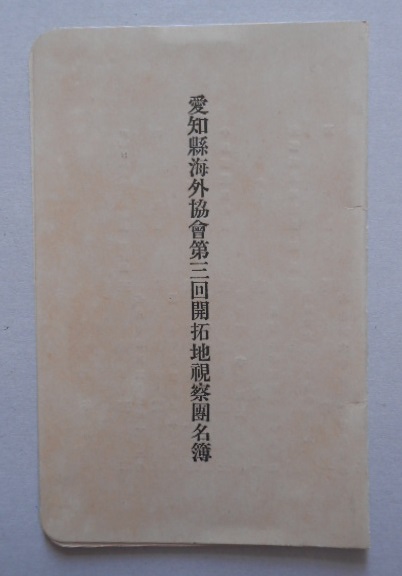 愛知縣海外協會第三回開拓地視察團名簿